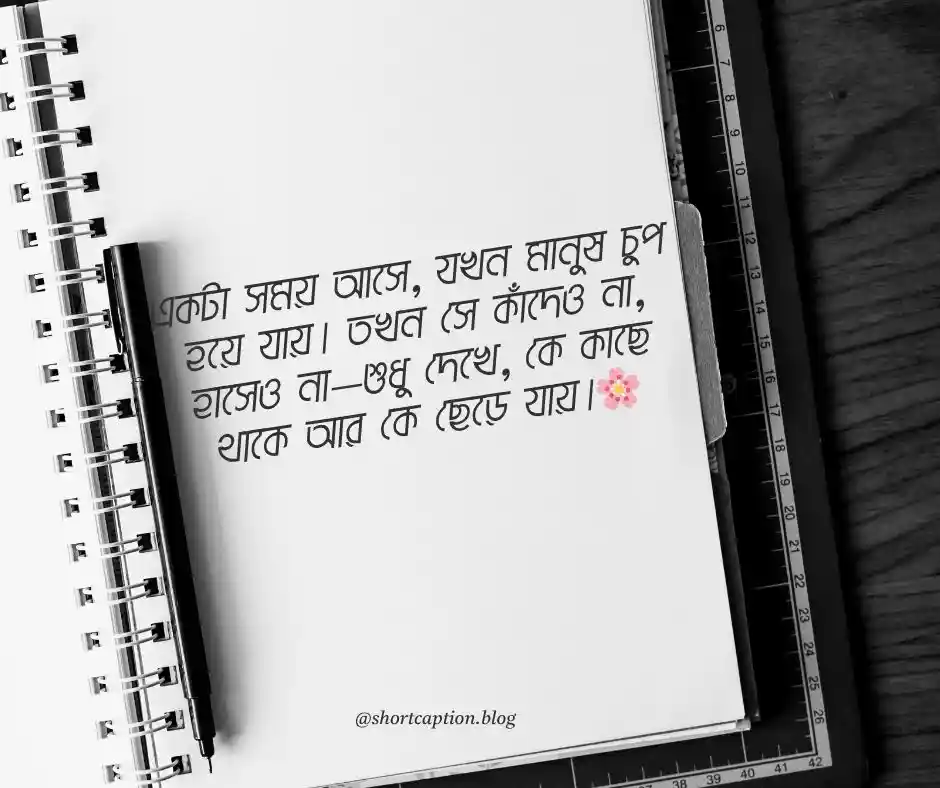 একটা সময় আসে, যখন মানুষ চুপ
হয়ে যায়। তখন সে কাঁদেও না,
হাসেও না—শুধু দেখে, কে কাছে
থাকে আর কে ছেড়ে যায়।🌸
@shortcaption.blog
6
7
8
9
10
11
12
13
14
15
16
17
18
19
20
21
22
23
24
25
26
38
39
40
41
42